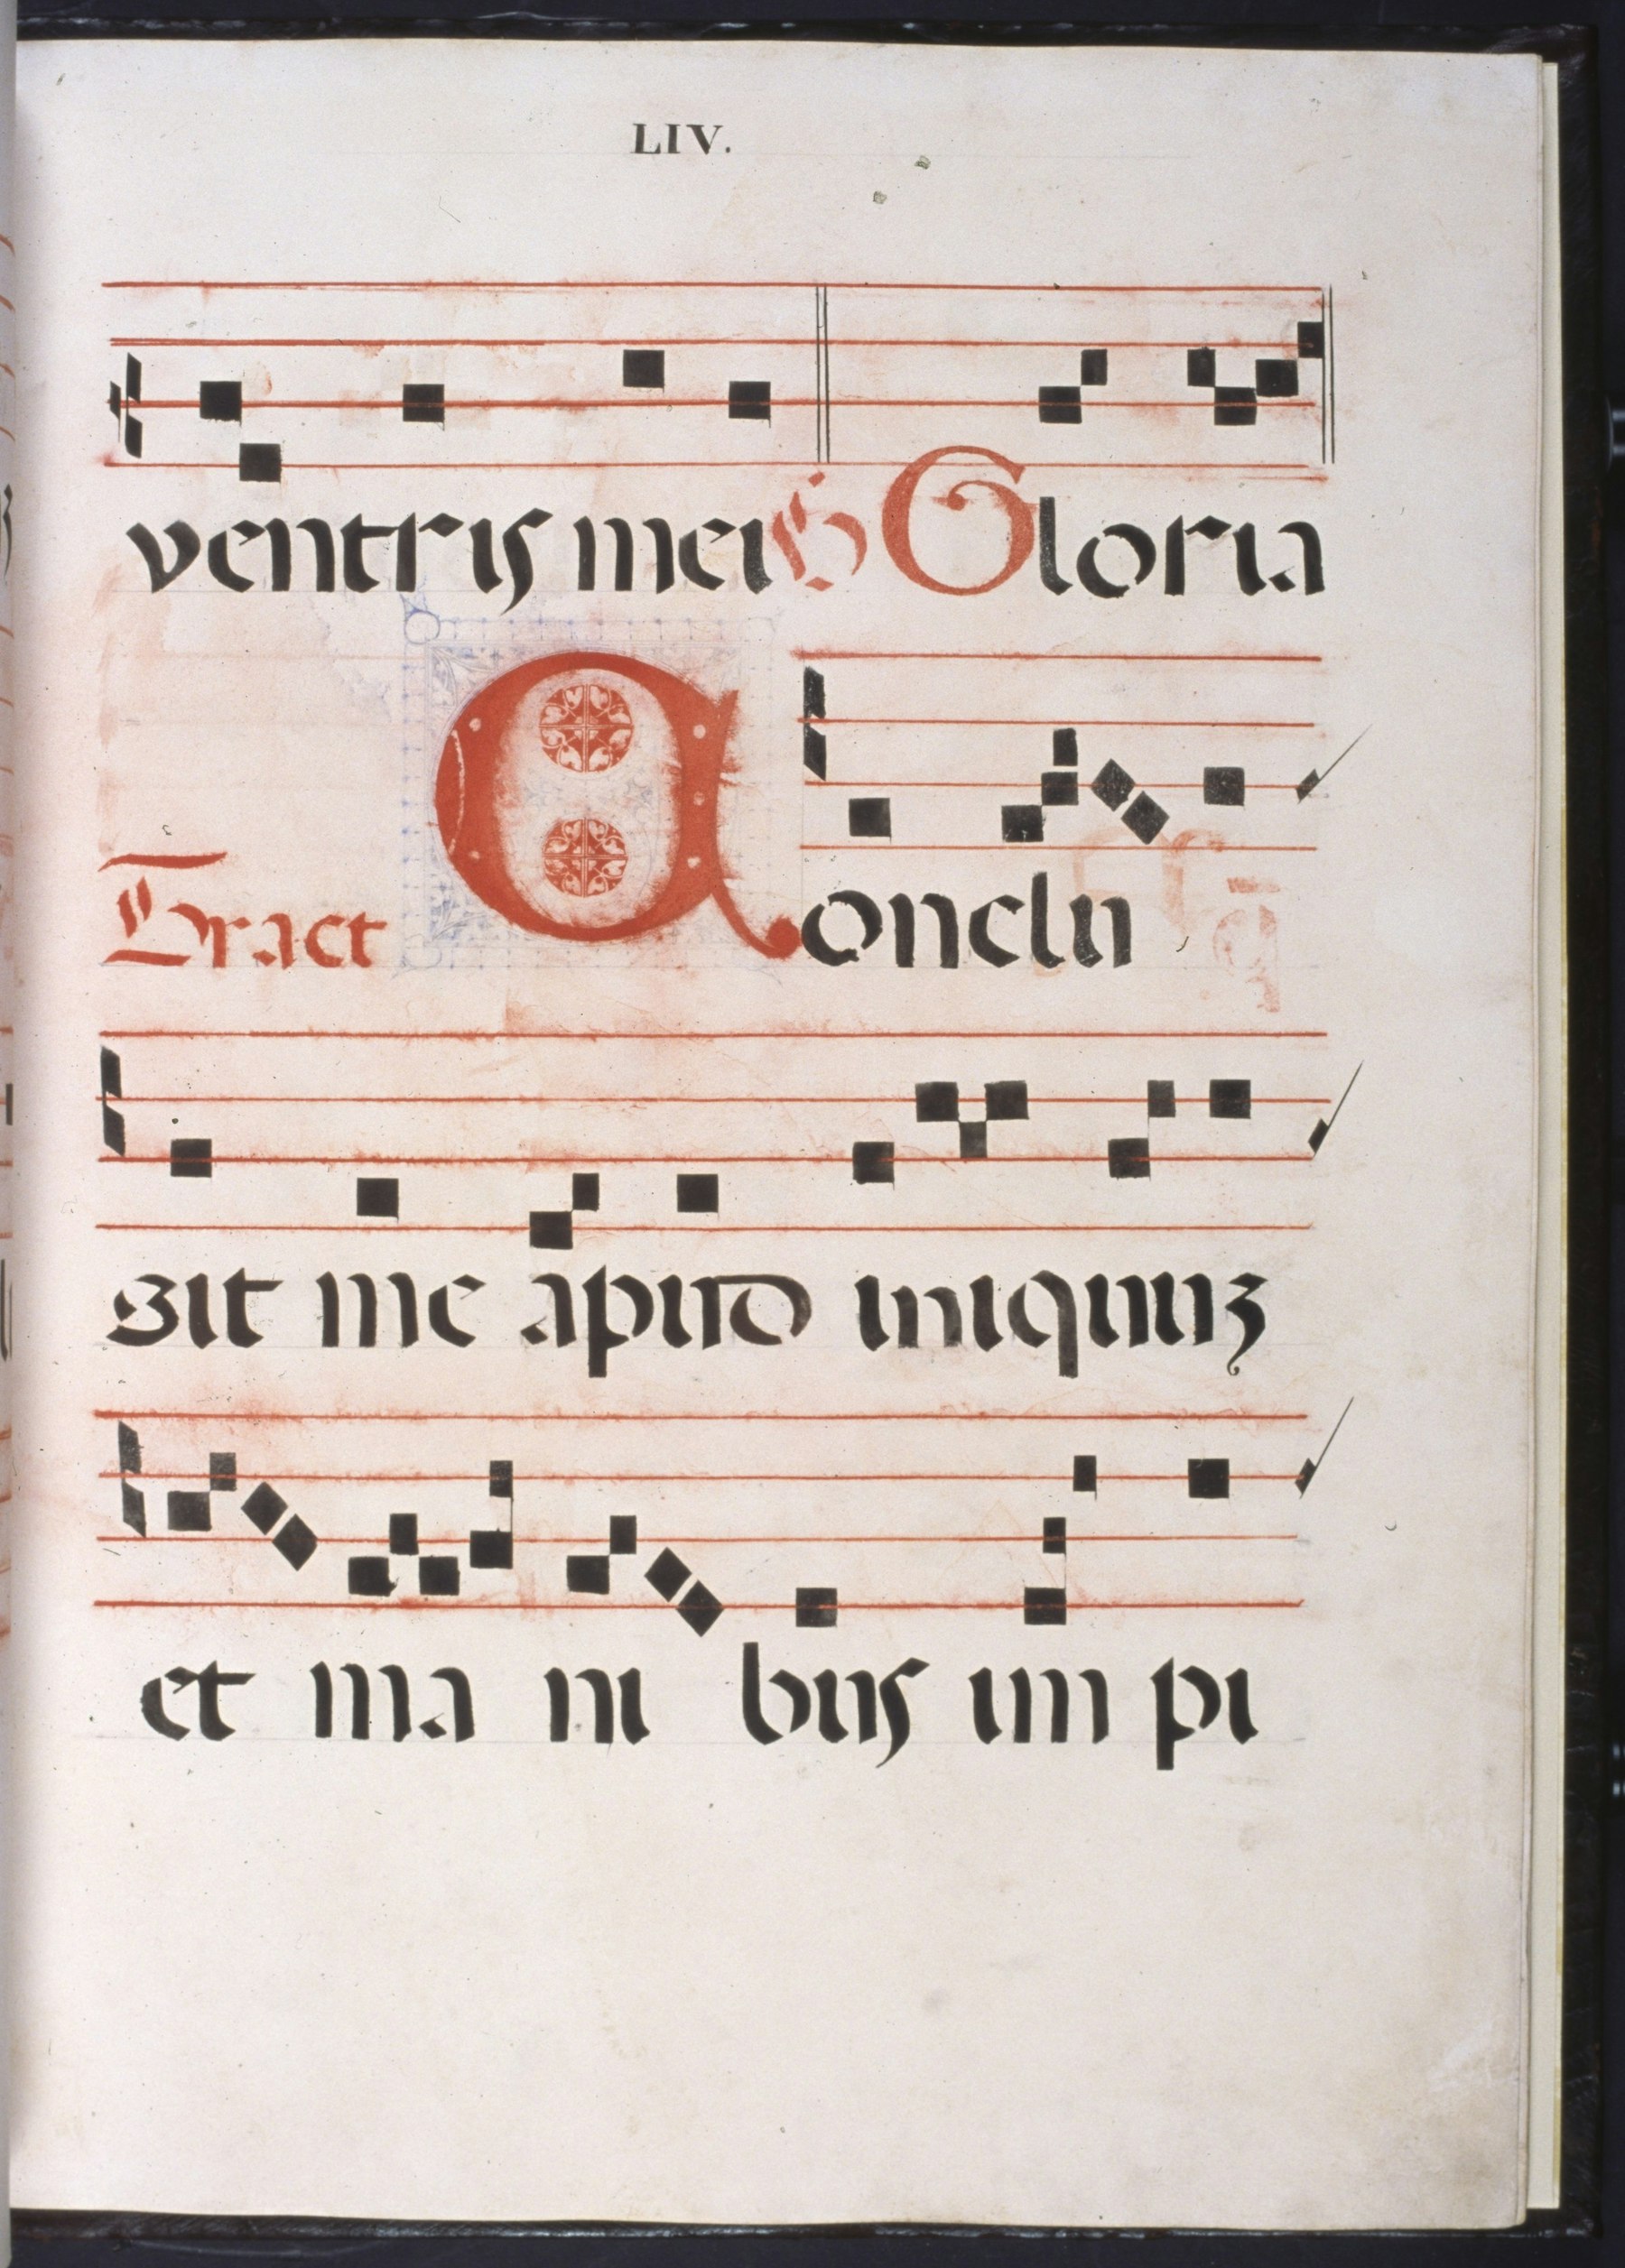 LIV.
ventris mei G Gloria
Tract Conclu
sit me apud iniquuz
et ma ni bus im pi